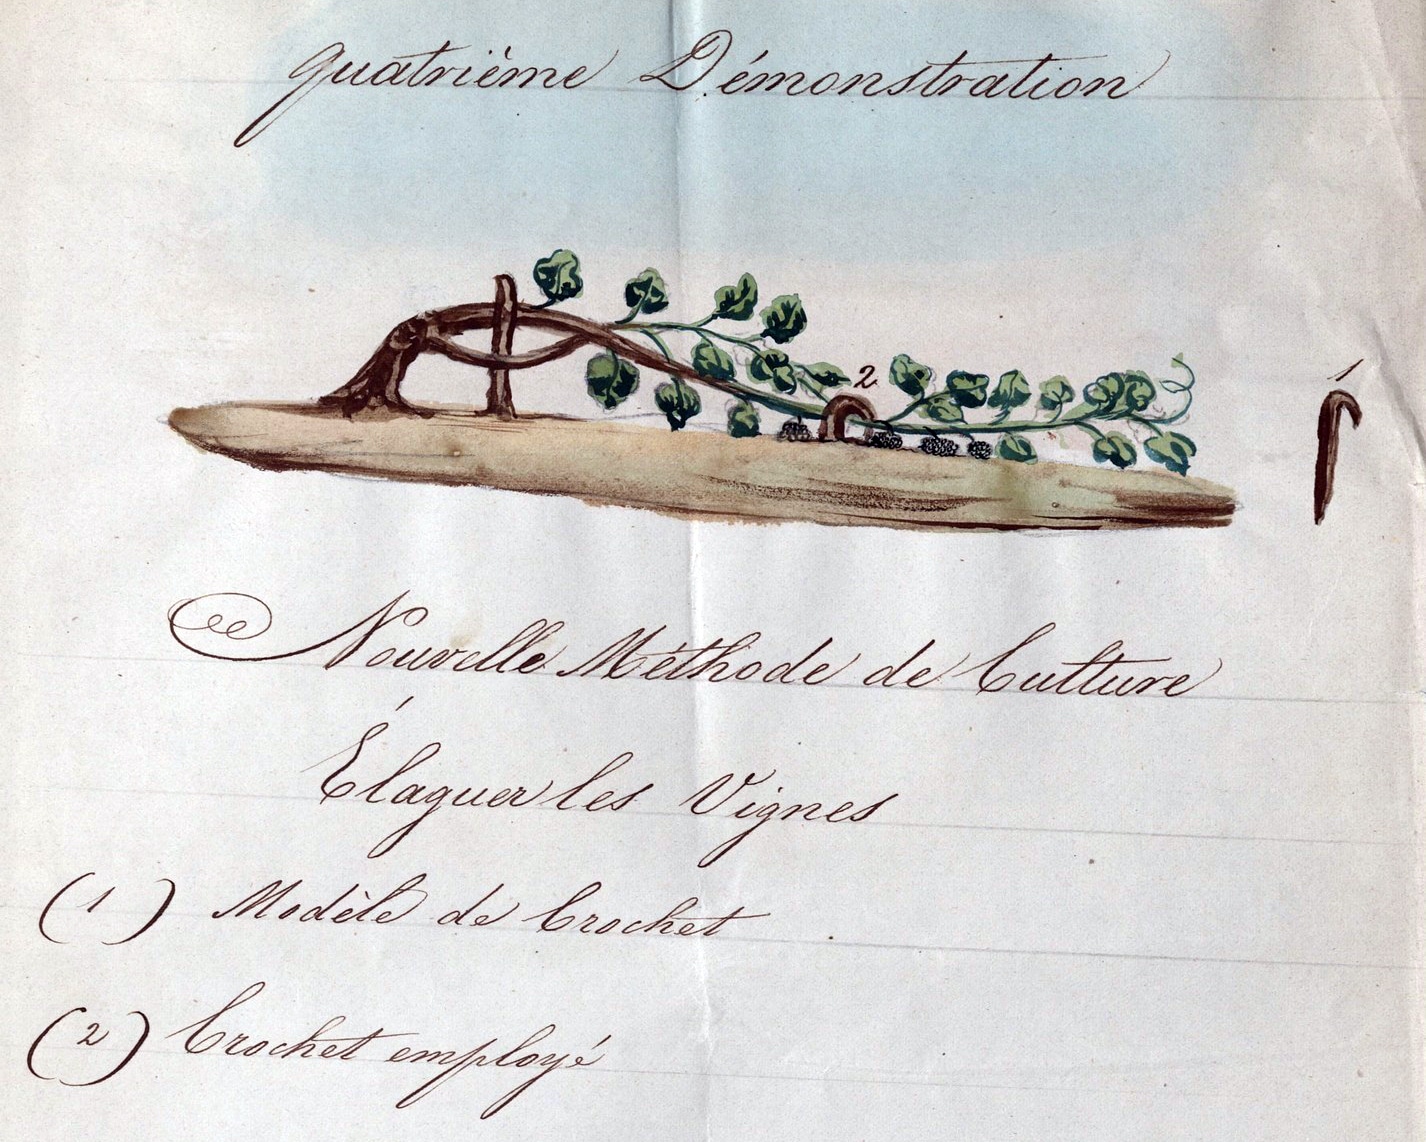 quatrième Démonstration
2
1
Nouvelle Méthode de Culture
Élaguer les Vignes
(1) Modèle de Crochet
(2) Crochet employé